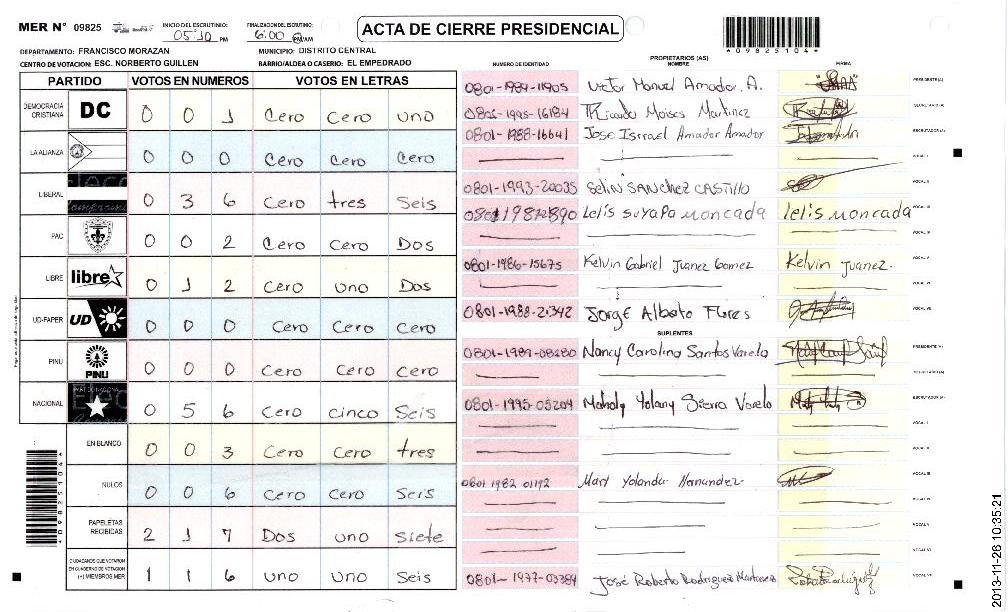 MER N° 09825 INICIO DEL ESCRUTINIO: 05:10 PM FINALIZACIÓN DEL ESCRUTINIO: 6:00 PM/AM ACTA DE CIERRE PRESIDENCIAL
*09825104*
DEPARTAMENTO: FRANCISCO MORAZAN MUNICIPIO: DISTRITO CENTRAL
CENTRO DE VOTACION: ESC. NORBERTO GUILLEN BARRIO/ALDEA O CASERIO: EL EMPEDRADO
PARTIDO VOTOS EN NUMEROS VOTOS EN LETRAS
DEMOCRACIA CRISTIANA DC 0 0 1 Cero Cero uno
LA ALIANZA 0 0 0 Cero Cero Cero
LIBERAL 0 3 6 Cero tres Seis
PAC 0 0 2 Cero Cero Dos
LIBRE libre 0 1 2 Cero uno Dos
UD-FAPER UD 0 0 0 Cero Cero Cero
PINU PINU 0 0 0 Cero Cero Cero
NACIONAL 0 5 6 Cero cinco Seis
EN BLANCO 0 0 3 Cero Cero tres
NULOS 0 0 6 Cero Cero Seis
PAPELETAS RECIBIDAS 2 1 7 Dos uno siete
CIUDADANOS QUE VOTARON EN CUADERNO DE VOTACION (+) MIEMBROS MER 1 1 6 uno uno Seis
*09825104*
PROPIETARIOS (AS)
NUMERO DE IDENTIDAD NOMBRE FIRMA
0801-1989-11905 Victor Manuel Amador. A. PRESIDENTE(A)
0801-1995-16184 Ricardo Moises Martinez SECRETARIO(A)
0801-1988-16641 Jose Isrrael Amador Amador ESCRUTADOR(A)
VOCAL I
0801-1993-20035 Selin SANchez CASTILLO VOCAL II
Lelis suyapa moncada lelis moncada VOCAL III
VOCAL IV
0801-1986-15675 Kelvin Gabriel Juanez Gomez Kelvin Juanez. VOCAL V
VOCAL VI
0801-1988-21342 Jorge Alberto Flores VOCAL VII
SUPLENTES
0801-1989-08280 Nancy Carolina Santos Varela PRESIDENTE(A)
SECRETARIO(A)
0801-1995-05204 Yolany Sierra Varela ESCRUTADOR(A)
VOCAL I
VOCAL II
0801 1982 01192 Mary Yolanda Hernandez VOCAL III
VOCAL IV
VOCAL V
VOCAL VI
0801-1977-03384 José Roberto Rodriguez Martinez VOCAL VII
2013-11-26 10:35:21